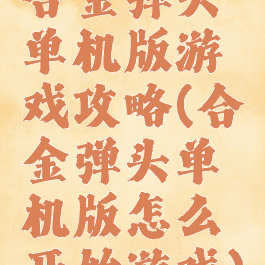 合金弹头
单机版游
戏攻略(合
金弹头单
机版怎么
开始游戏)